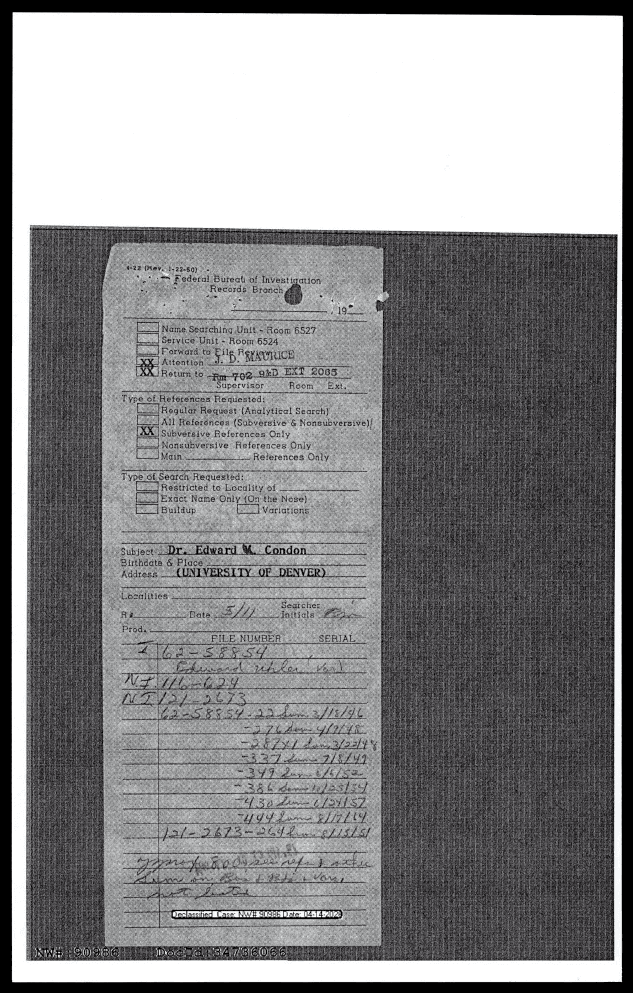 4-22 (Rev. 1-22-60)
Federal Bureau of Investigation
Records Branch
, 19
Name Searching Unit - Room 6527
Service Unit - Room 6524
Forward to File Review
XX Attention J. D. MATRUCE
XX Return to Rm 702 9&D EXT 2085
Supervisor Room Ext.
Type of References Requested:
Regular Request (Analytical Search)
All References (Subversive & Nonsubversive)
XX Subversive References Only
Nonsubversive References Only
Main References Only
Type of Search Requested:
Restricted to Locality of
Exact Name Only (On the Nose)
Buildup Variations
Subject Dr. Edward M. Condon
Birthdate & Place
Address (UNIVERSITY OF DENVER)
Localities
R# Date 5/11 Searcher Initials
Prod.
FILE NUMBER SERIAL
I 62-58854
Edward Uhler (var)
NI 116-624
NI 121-2673
62-58854-22 Sum 3/18/46
-276 Sum 4/7/48
-287X1 Sum 3/22/48
-337 Sum 7/8/49
-349 Sum 6/6/52
-386 Sum 10/25/54
-430 Sum 6/24/57
-444 Sum 8/7/64
121-2673-264 Sum 8/15/51
800 see refs & other
Sum on & vars,
not listed
Declassified Case: NW# 90986 Date: 04-14-2024
NW#: 90986 DocId:34736066